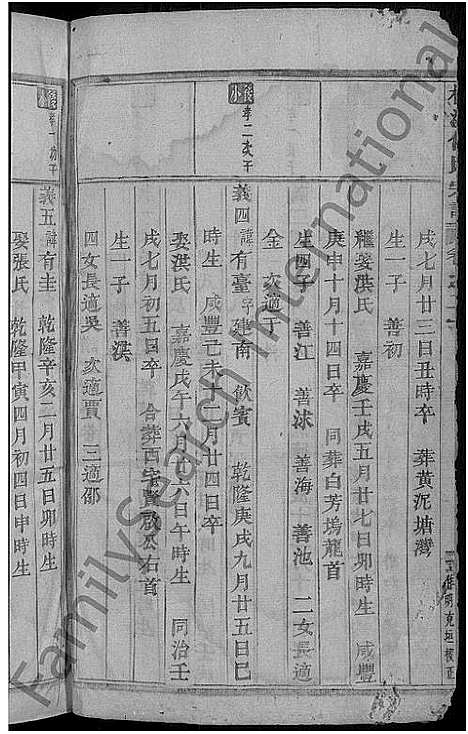 戌七月廿三日丑時卒 葬黃泥塘灣
生一子 善初
繼娶洪氏 嘉慶壬戌五月廿七日卯時生 咸豐
庚申十月十四日卒 同葬白芳塢龍首
生四子 善江 善球 善海 善池 二女長適
金 次適于
孝二次子
義四 諱有臺 字建南 飲賓 乾隆庚戌九月廿五日巳
時生 咸豐己未十二月廿四日卒
娶洪氏 嘉慶戊午六月廿六日午時生 同治壬
戌七月初五日卒 合葬西 公右首
生一子 善淇
四女長適吳 次適賈 三適邵
孝一次子
義五 諱有圭 乾隆辛亥二月廿五日卯時生
娶張氏 乾隆甲寅四月初四日申時生
FamilySearch International